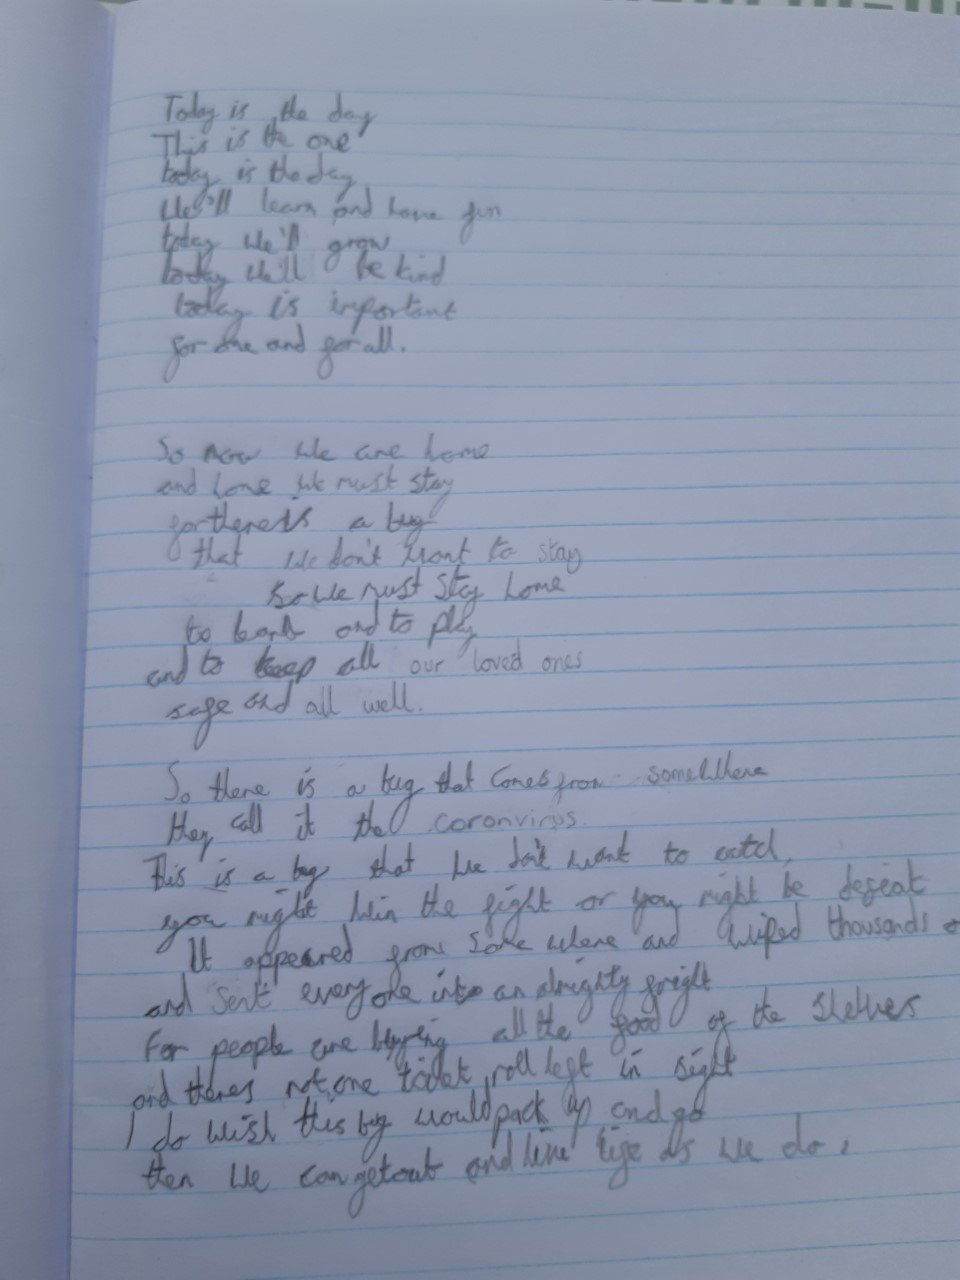 Today is the day
This is the one
today is the day
We'll learn and have fun
today we'll grow
today we'll be kind
today is important
for one and for all.
So now we are home
and home we must stay
for there is a bug
that we don't want to stay
so we must stay home
to learn and to play
and to keep all our loved ones
safe and all well.
So there is a bug that comes from somewhere
they call it the coronvirus.
This is a bug that we don't want to catch,
you might win the fight or you might be defeat
It appeared from some where and wiped thousands
and sent everyone into an almighty fright
For people are buying all the food of the shelves
and theres not one toilet roll left in sight
I do wish this bug would pack up and go
then we can get out and live life as we do.